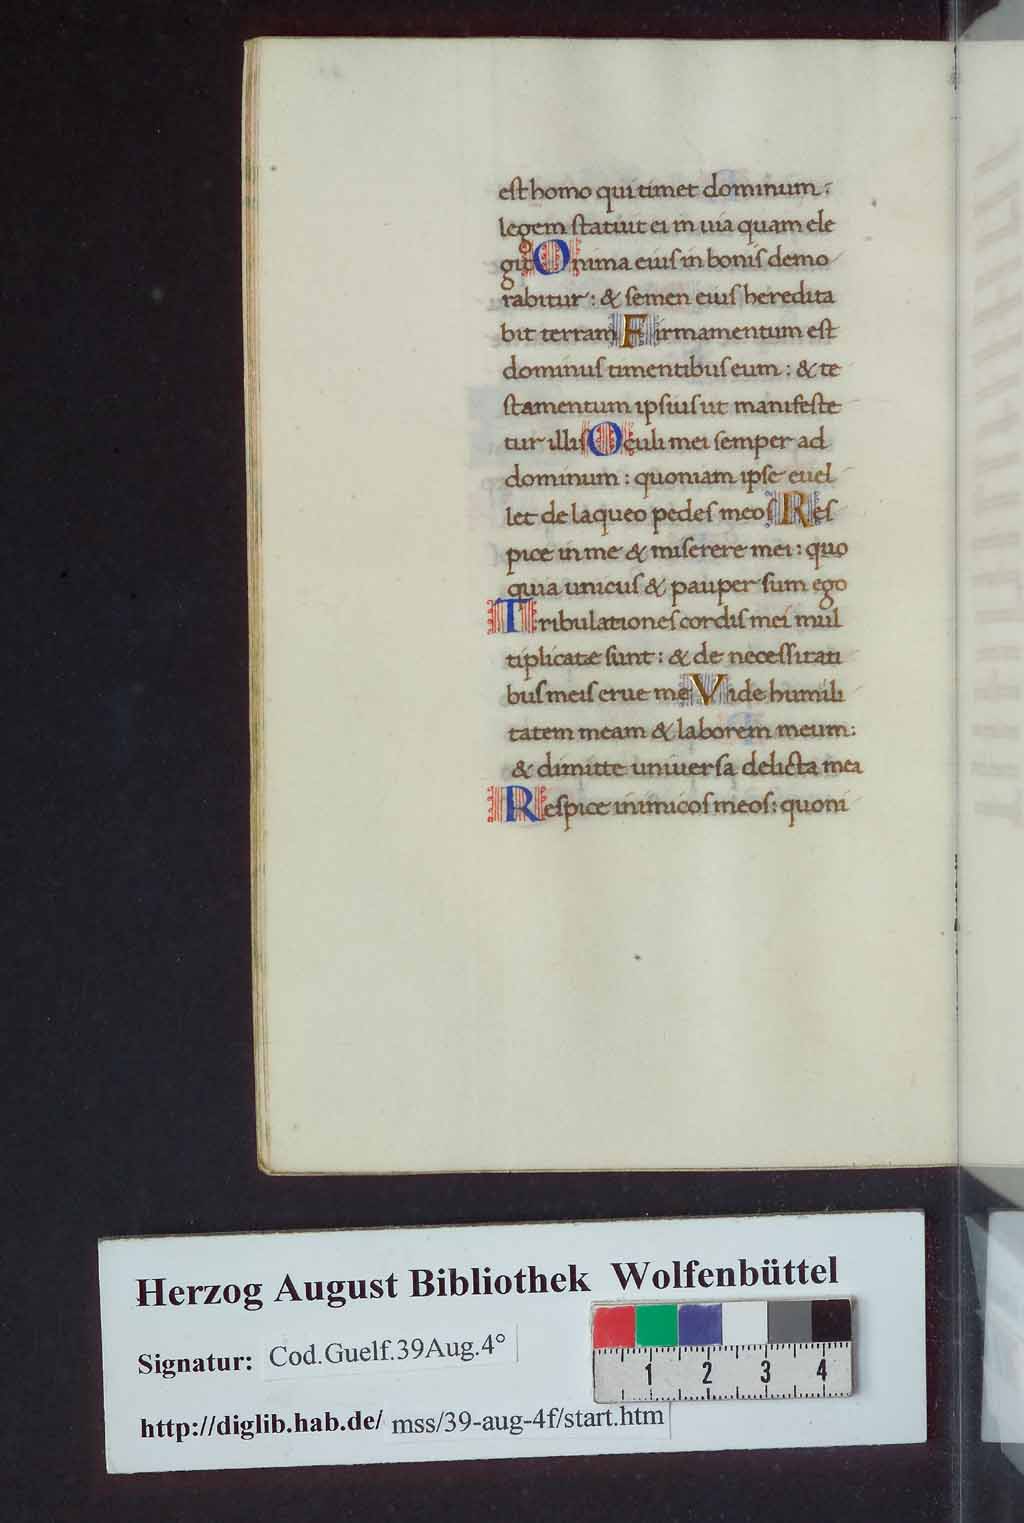 est homo qui timet dominum:
legem statuit ei in uia quam ele
git Onima eius in bonis demo
rabitur: & semen eius heredita
bit terram Firmamentum est
dominus timentibus eum: & te
stamentum ipsius ut manifeste
tur illis Oculi mei semper ad
dominum: quoniam ipse euel
let de laqueo pedes meos Res
pice in me & miserere mei: quo
quia unicus & pauper sum ego
Tribulationes cordis mei mul
tiplicatae sunt: & de necessitati
bus meis erue me Vide humili
tatem meam & laborem meum:
& dimitte uniuersa delicta mea
Respice inimicos meos: quoni
Herzog August Bibliothek Wolfenbüttel
Signatur: Cod.Guelf.39Aug.4°
1 2 3 4
http://diglib.hab.de/ mss/39-aug-4f/start.htm